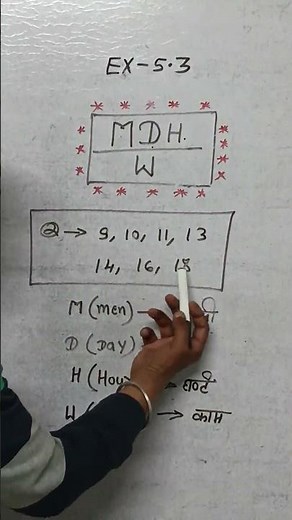 EX-5.3
MDH
W
② → 9, 10, 11, 13
14, 16, 18
M (men) →
D (Day)
H (Hou → घण्टे
W ( → काम